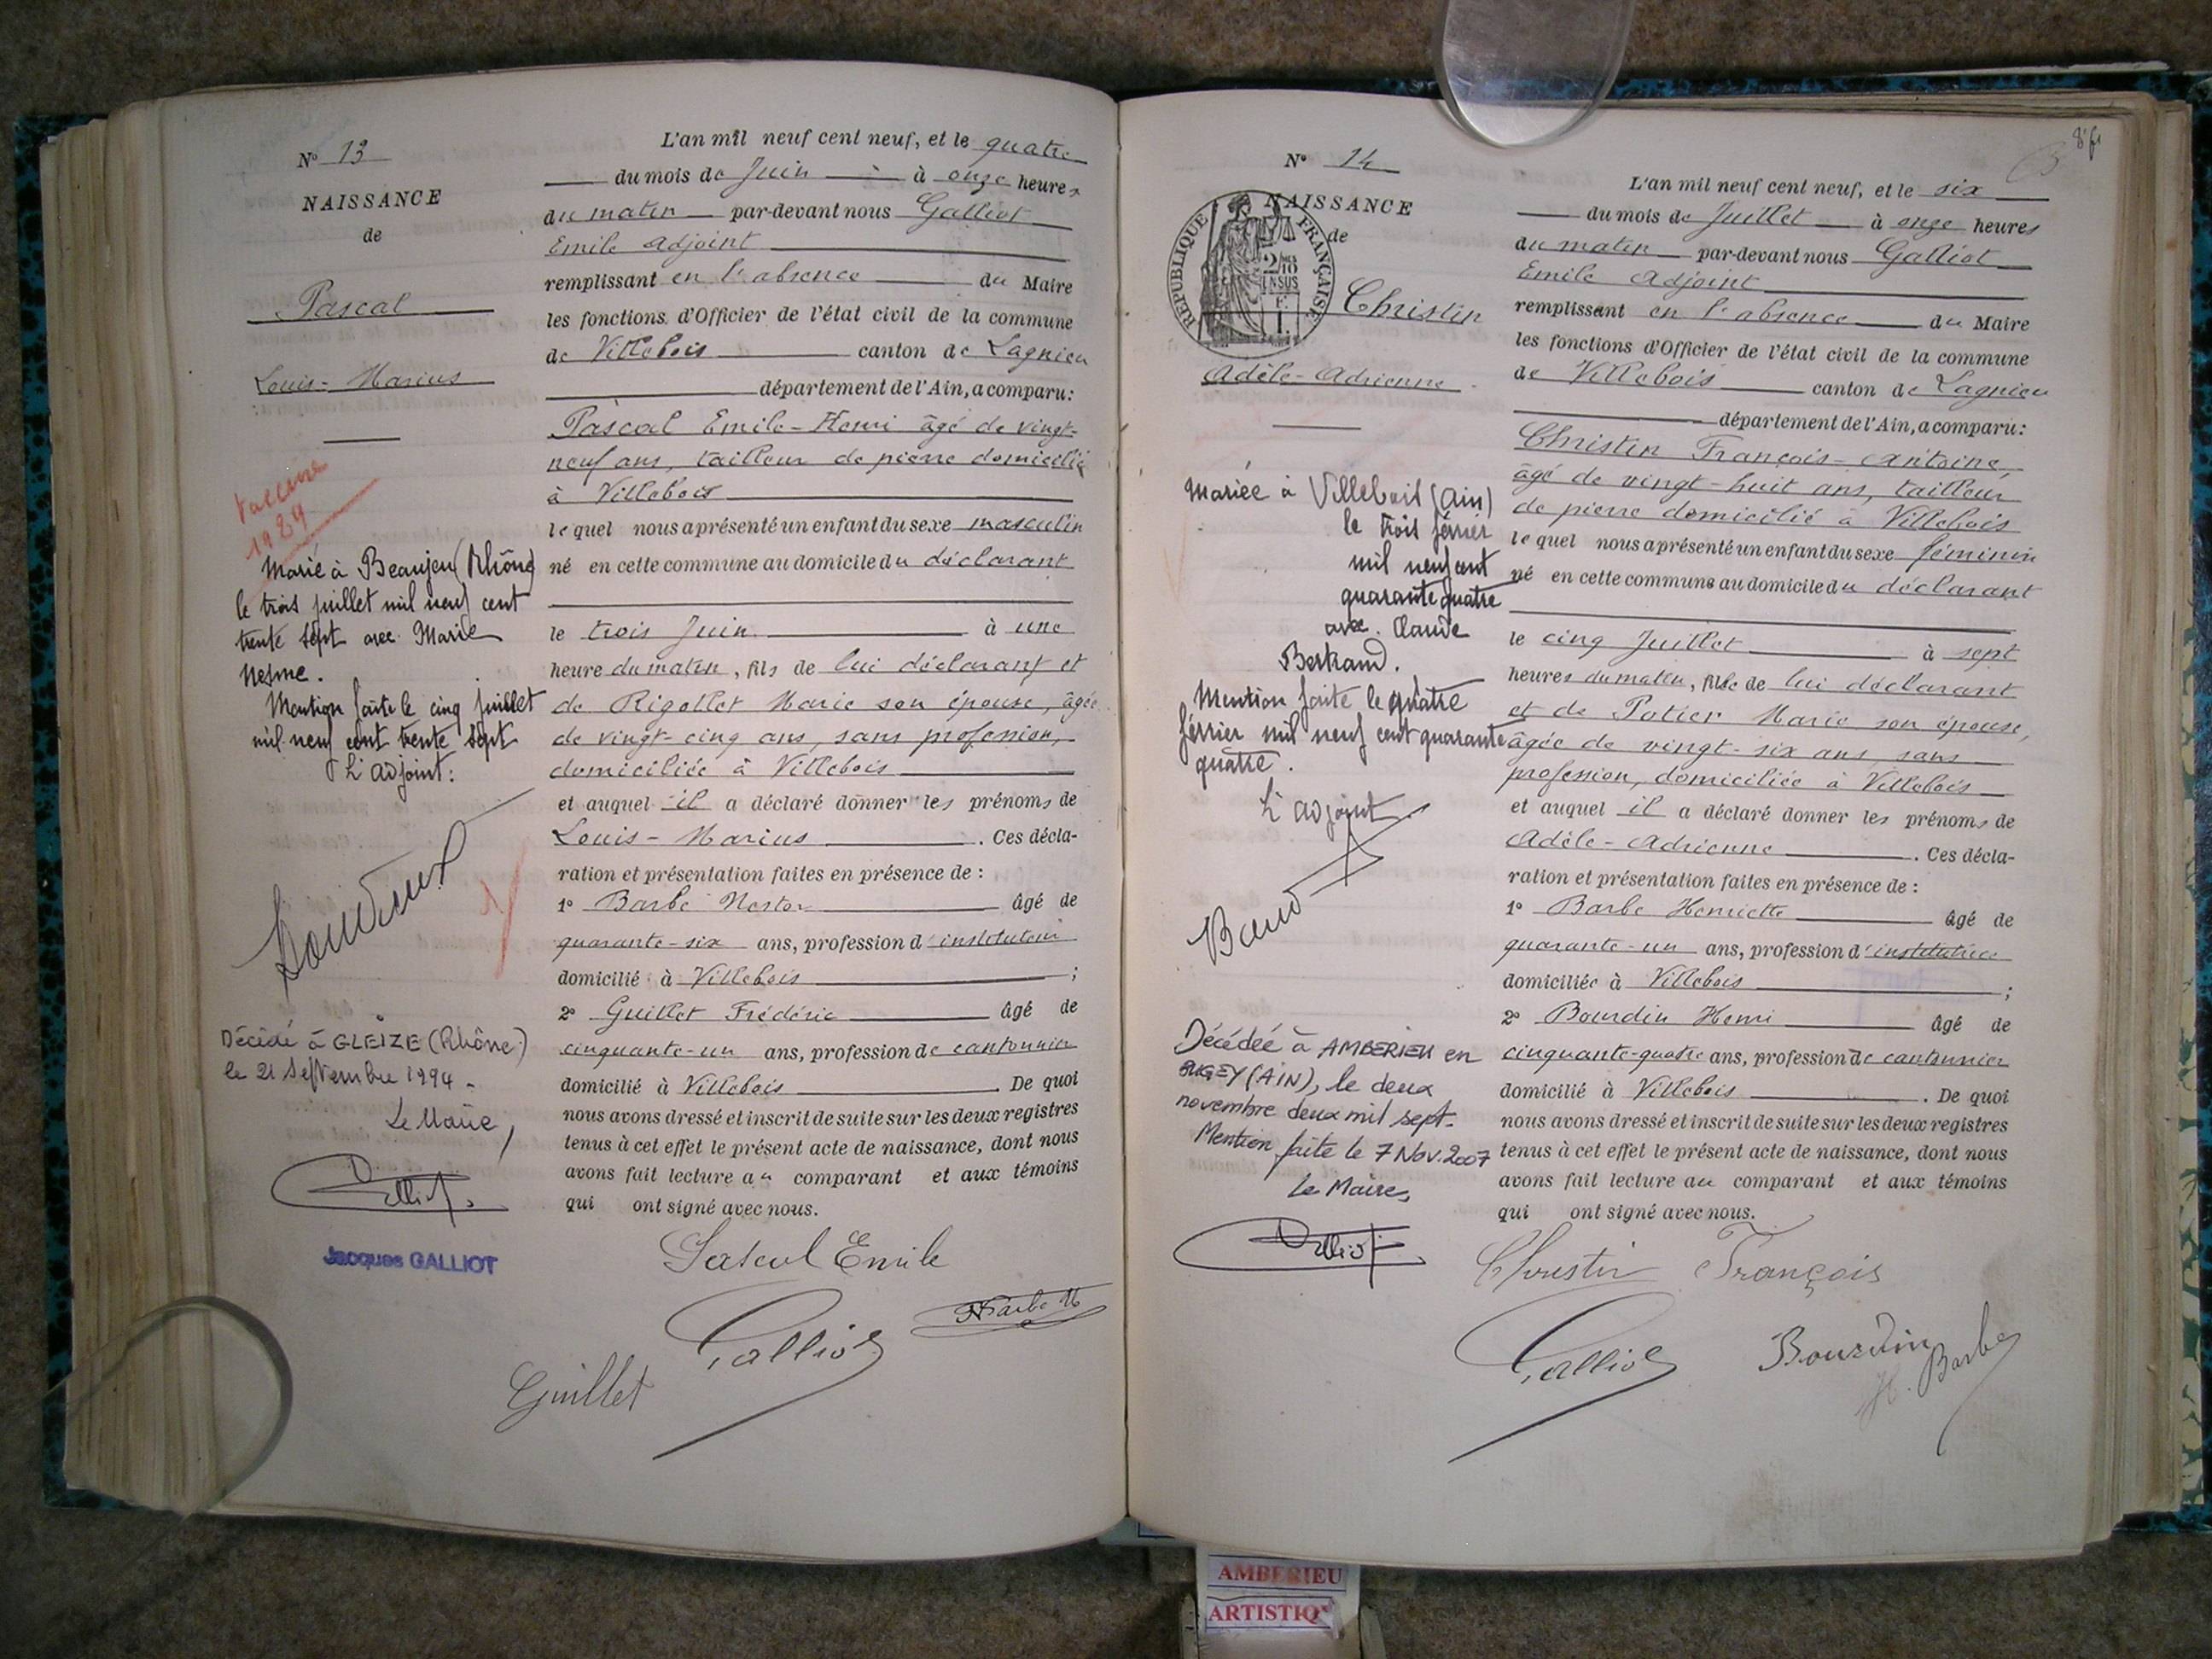 N° 13
NAISSANCE
de
Pascal
Louis-Marius
Vaccine
1984
Marié à Beaujeu (Rhône)
le trois juillet mil neuf cent
trente sept avec Marie
Nesme.
Mention faite le cinq juillet
mil neuf cent trente sept
L'adjoint:
Décédé à GLEIZE (Rhône)
le 21 Septembre 1994 -
Le Maire,
Jacques GALLIOT
L'an mil neuf cent neuf, et le quatre
du mois de Juin à onze heures
du matin par-devant nous Galliot
Emile Adjoint
remplissant en l'absence du Maire
les fonctions d'Officier de l'état civil de la commune
de Villebois canton de Lagnieu
département de l'Ain, a comparu:
Pascal Emile-Henri âgé de vingt-
neuf ans, tailleur de pierre domicilié
à Villebois
lequel nous a présenté un enfant du sexe masculin
né en cette commune au domicile du déclarant
le trois Juin à une
heure du matin, fils de lui déclarant et
de Rigollet Marie son épouse, âgée
de vingt-cinq ans, sans profession,
domiciliée à Villebois
et auquel il a déclaré donner les prénoms de
Louis-Marius. Ces décla-
ration et présentation faites en présence de :
1° Barbe Nestor âgé de
quarante-six ans, profession d'instituteur
domicilié à Villebois ;
2° Guillet Frédéric âgé de
cinquante-un ans, profession de cantonnier
domicilié à Villebois. De quoi
nous avons dressé et inscrit de suite sur les deux registres
tenus à cet effet le présent acte de naissance, dont nous
avons fait lecture au comparant et aux témoins
qui ont signé avec nous.
Pascal Emile
Barbe N
Galliot
Guillet
8e ft
N° 14
NAISSANCE
de
REPUBLIQUE FRANÇAISE
2/10
EN SUS
F.
1.
Christin
Adèle-Adrienne
Mariée à Villebois (Ain)
le trois février
mil neuf cent
quarante quatre
avec Claude
Bertrand.
Mention faite le quatre
février mil neuf cent quarante
quatre.
L'adjoint
Décédée à AMBERIEU en
BUGEY (AIN), le deux
novembre deux mil sept.
Mention faite le 7 Nov. 2007
Le Maire,
L'an mil neuf cent neuf, et le six
du mois de Juillet à onze heures
du matin par-devant nous Galliot
Emile Adjoint
remplissant en l'absence du Maire
les fonctions d'Officier de l'état civil de la commune
de Villebois canton de Lagnieu
département de l'Ain, a comparu:
Christin François-Antoine
âgé de vingt-huit ans, tailleur
de pierre domicilié à Villebois
lequel nous a présenté un enfant du sexe féminin
né en cette commune au domicile du déclarant
le cinq Juillet à sept
heures du matin, fille de lui déclarant
et de Potier Marie son épouse,
âgée de vingt-six ans sans
profession, domiciliée à Villebois
et auquel il a déclaré donner les prénoms de
Adèle-Adrienne. Ces décla-
ration et présentation faites en présence de :
1° Barbe Henriette âgé de
quarante-un ans, profession d'institutrice
domiciliée à Villebois ;
2° Bourdin Henri âgé de
cinquante-quatre ans, profession de cantonnier
domicilié à Villebois. De quoi
nous avons dressé et inscrit de suite sur les deux registres
tenus à cet effet le présent acte de naissance, dont nous
avons fait lecture au comparant et aux témoins
qui ont signé avec nous.
Christin François
Galliot
Bourdin
H. Barbe
AMBERIEU
ARTISTIQ